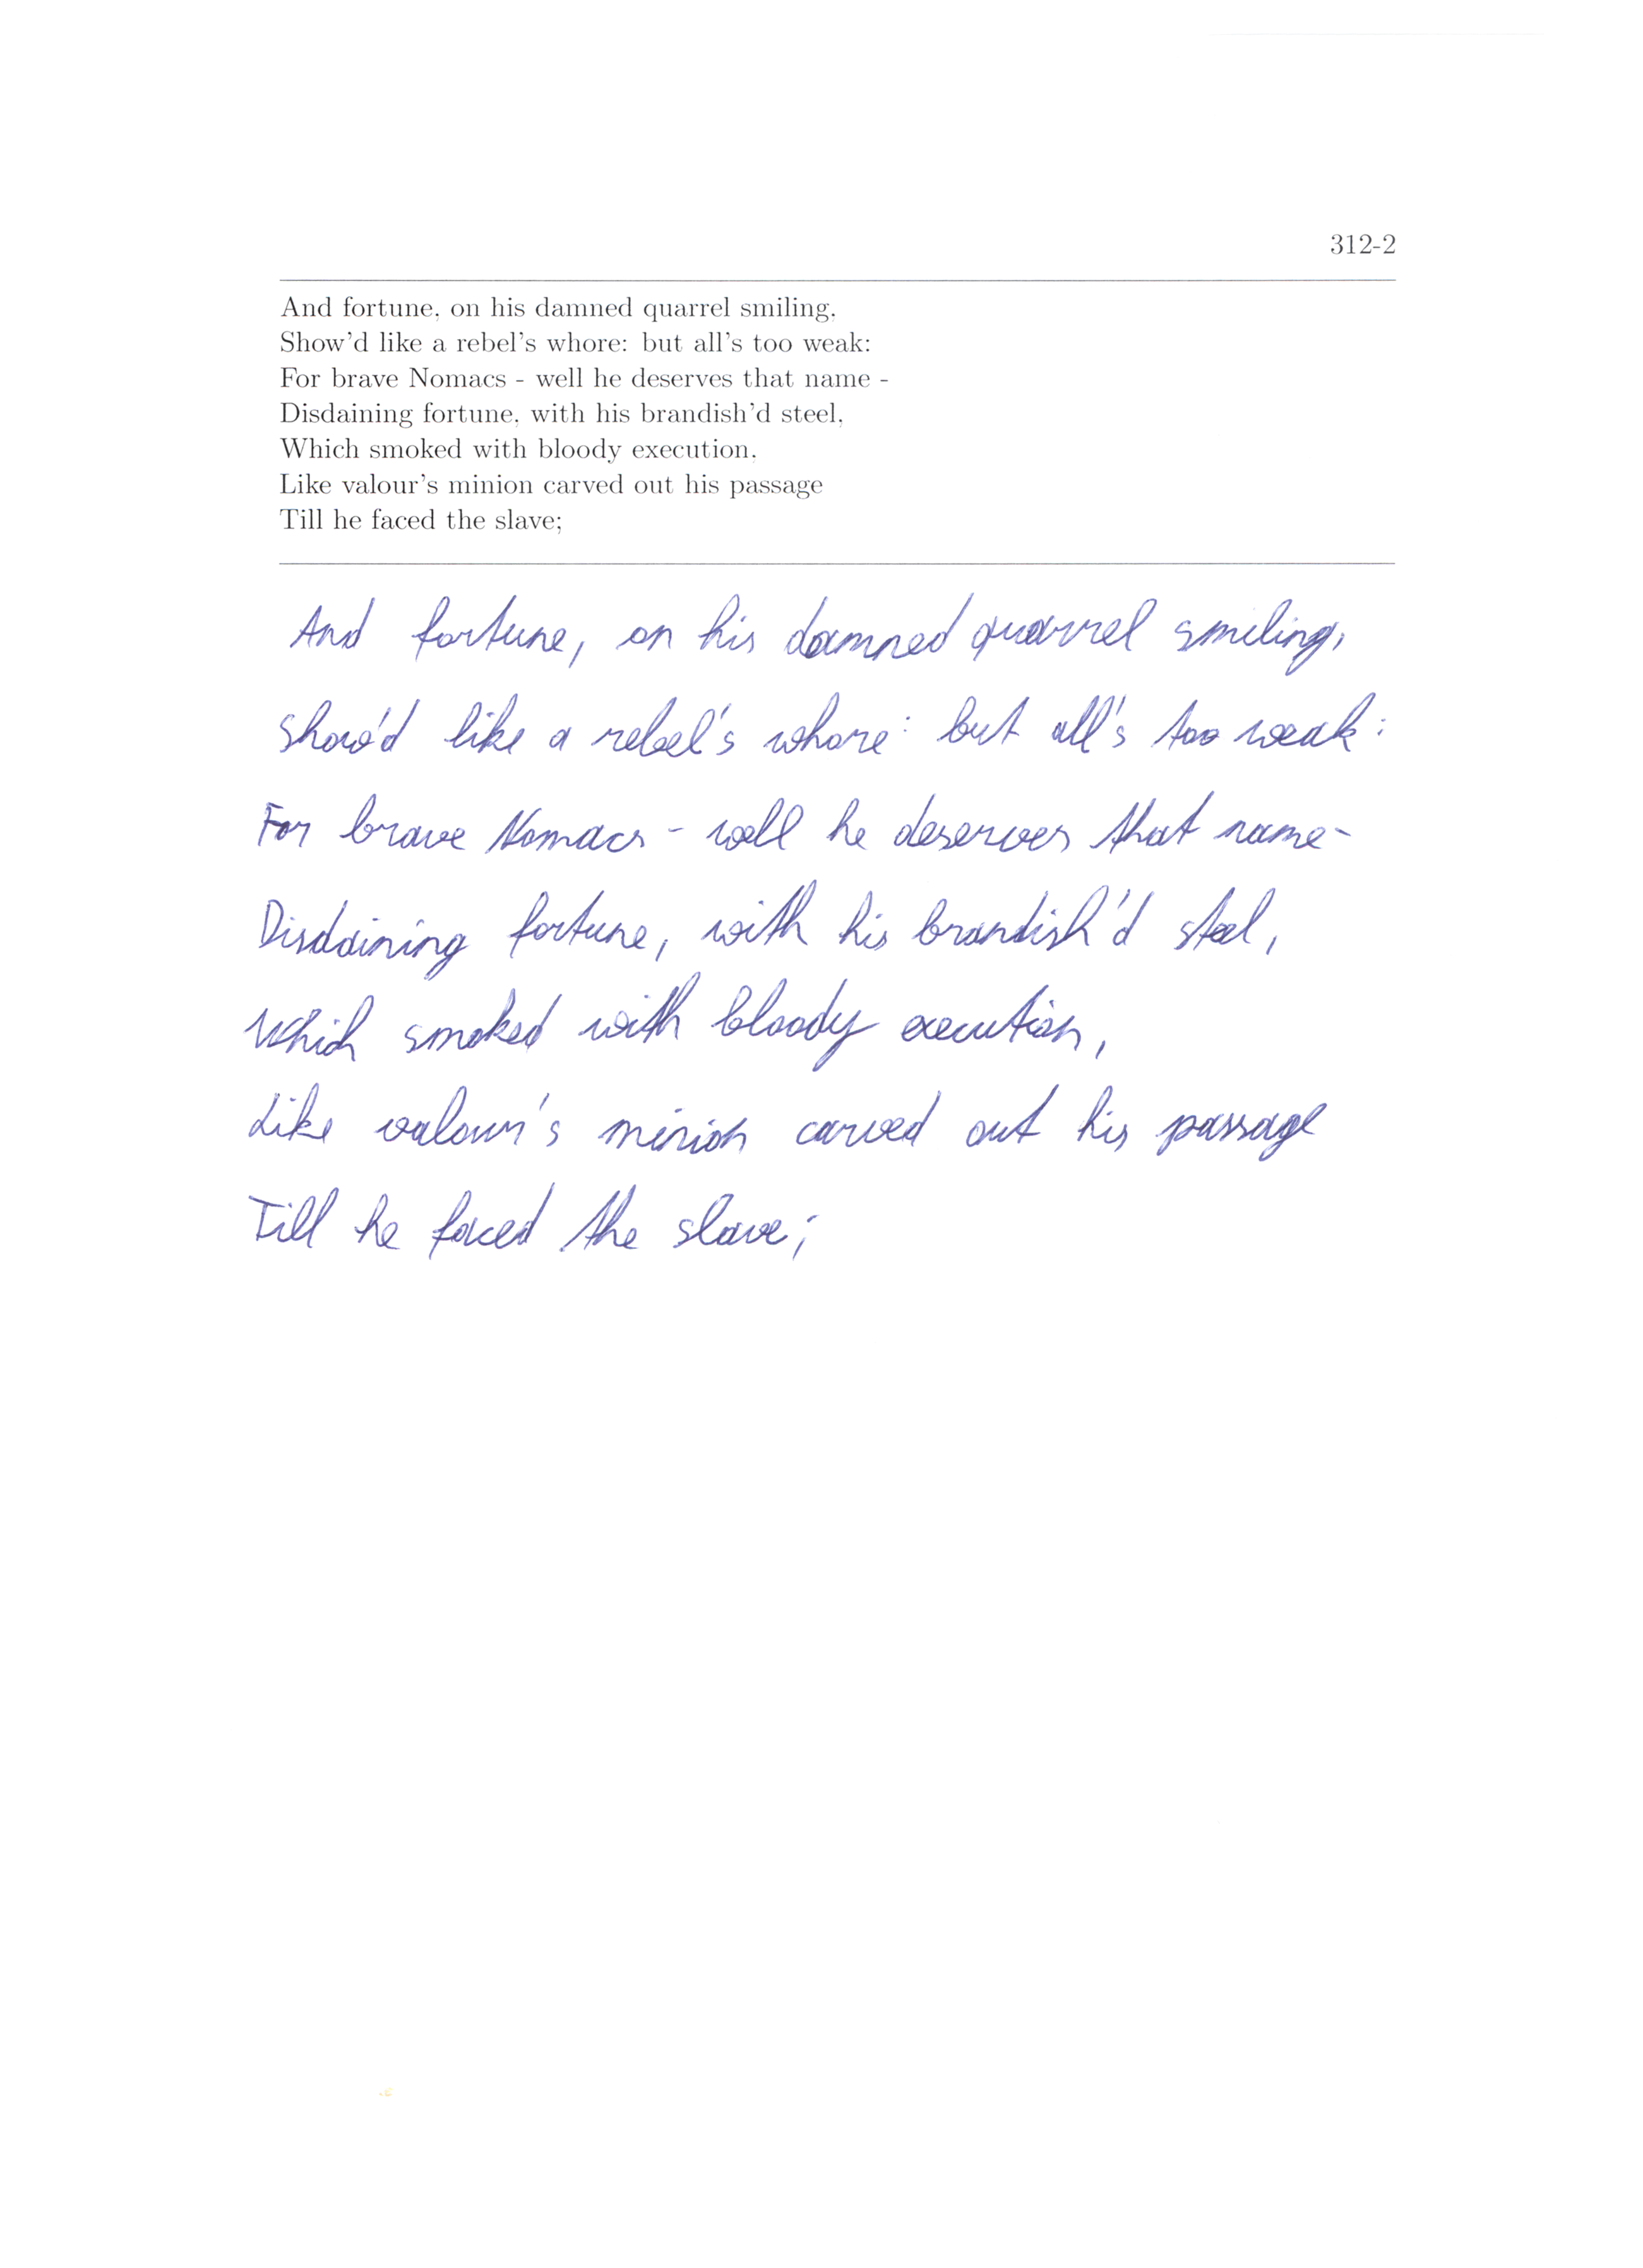 312-2
And fortune, on his damned quarrel smiling,
Show'd like a rebel's whore: but all's too weak:
For brave Nomacs - well he deserves that name -
Disdaining fortune, with his brandish'd steel,
Which smoked with bloody execution,
Like valour's minion carved out his passage
Till he faced the slave;
And fortune, on his damned quarrel smiling,
Show'd like a rebel's whore: but all's too weak:
For brave Nomacs - well he deserves that name -
Disdaining fortune, with his brandish'd steel,
Which smoked with bloody execution,
Like valour's minion carved out his passage
Till he faced the slave;